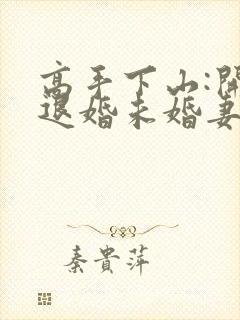 高手下山:開
退婚未婚妻
秦貴萍